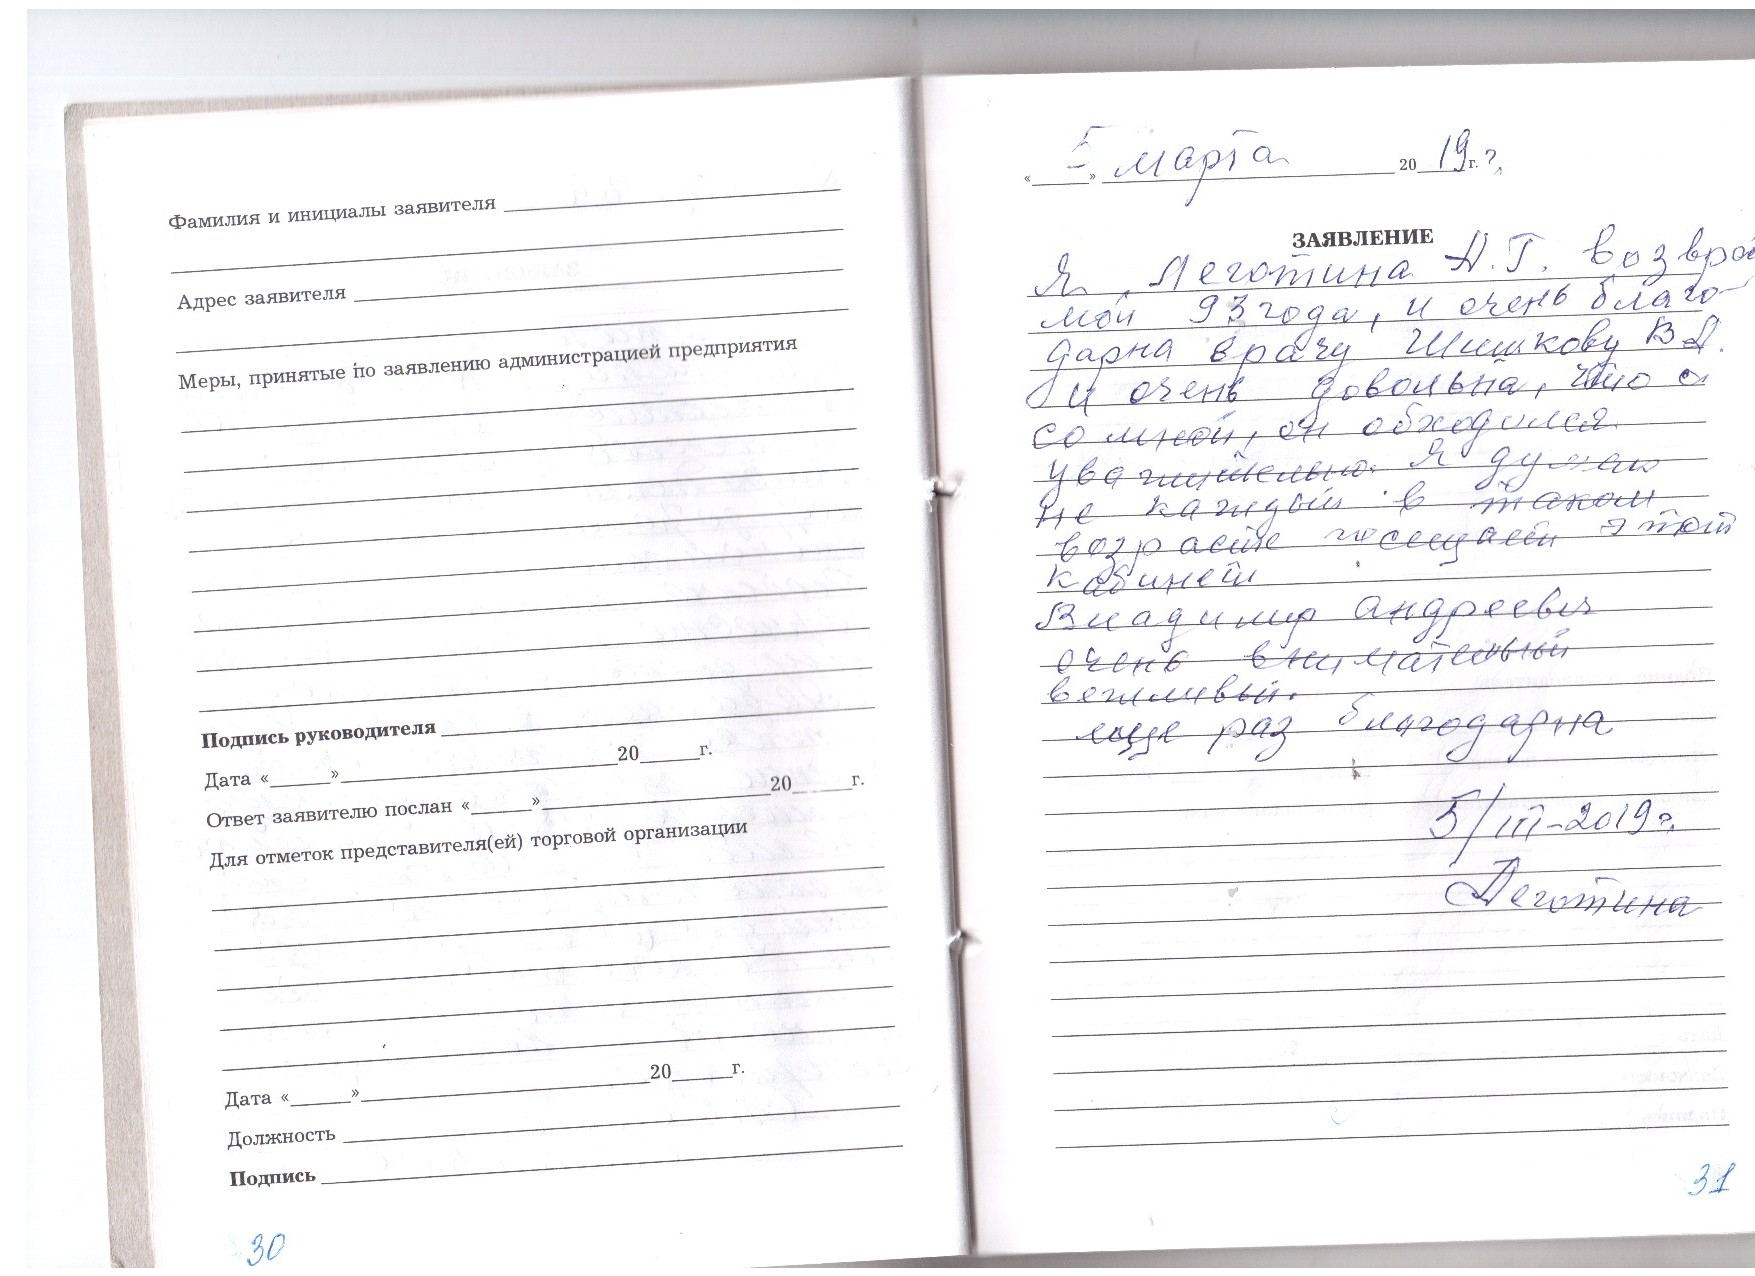 Фамилия и инициалы заявителя
Адрес заявителя
Меры, принятые по заявлению администрацией предприятия
Подпись руководителя
Дата «______»____________20______г.
Ответ заявителю послан «______»____________20______г.
Для отметок представителя(ей) торговой организации
Дата «______»____________20______г.
Должность
Подпись
30
«5» марта 2019г. г.
ЗАЯВЛЕНИЕ
Я, Леготина А.Г. возврас
мой 93 года, и очень благо-
дарна врачу Шишкову В.А.
и очень довольна, что
со мной, он обходился
уважительно. Я думаю
не каждый в таком
возрасте посещает этот
кабинет
Владимир Андреевич
очень внимательный
вежливый.
еще раз благодарна
5/III-2019г.
Леготина
31